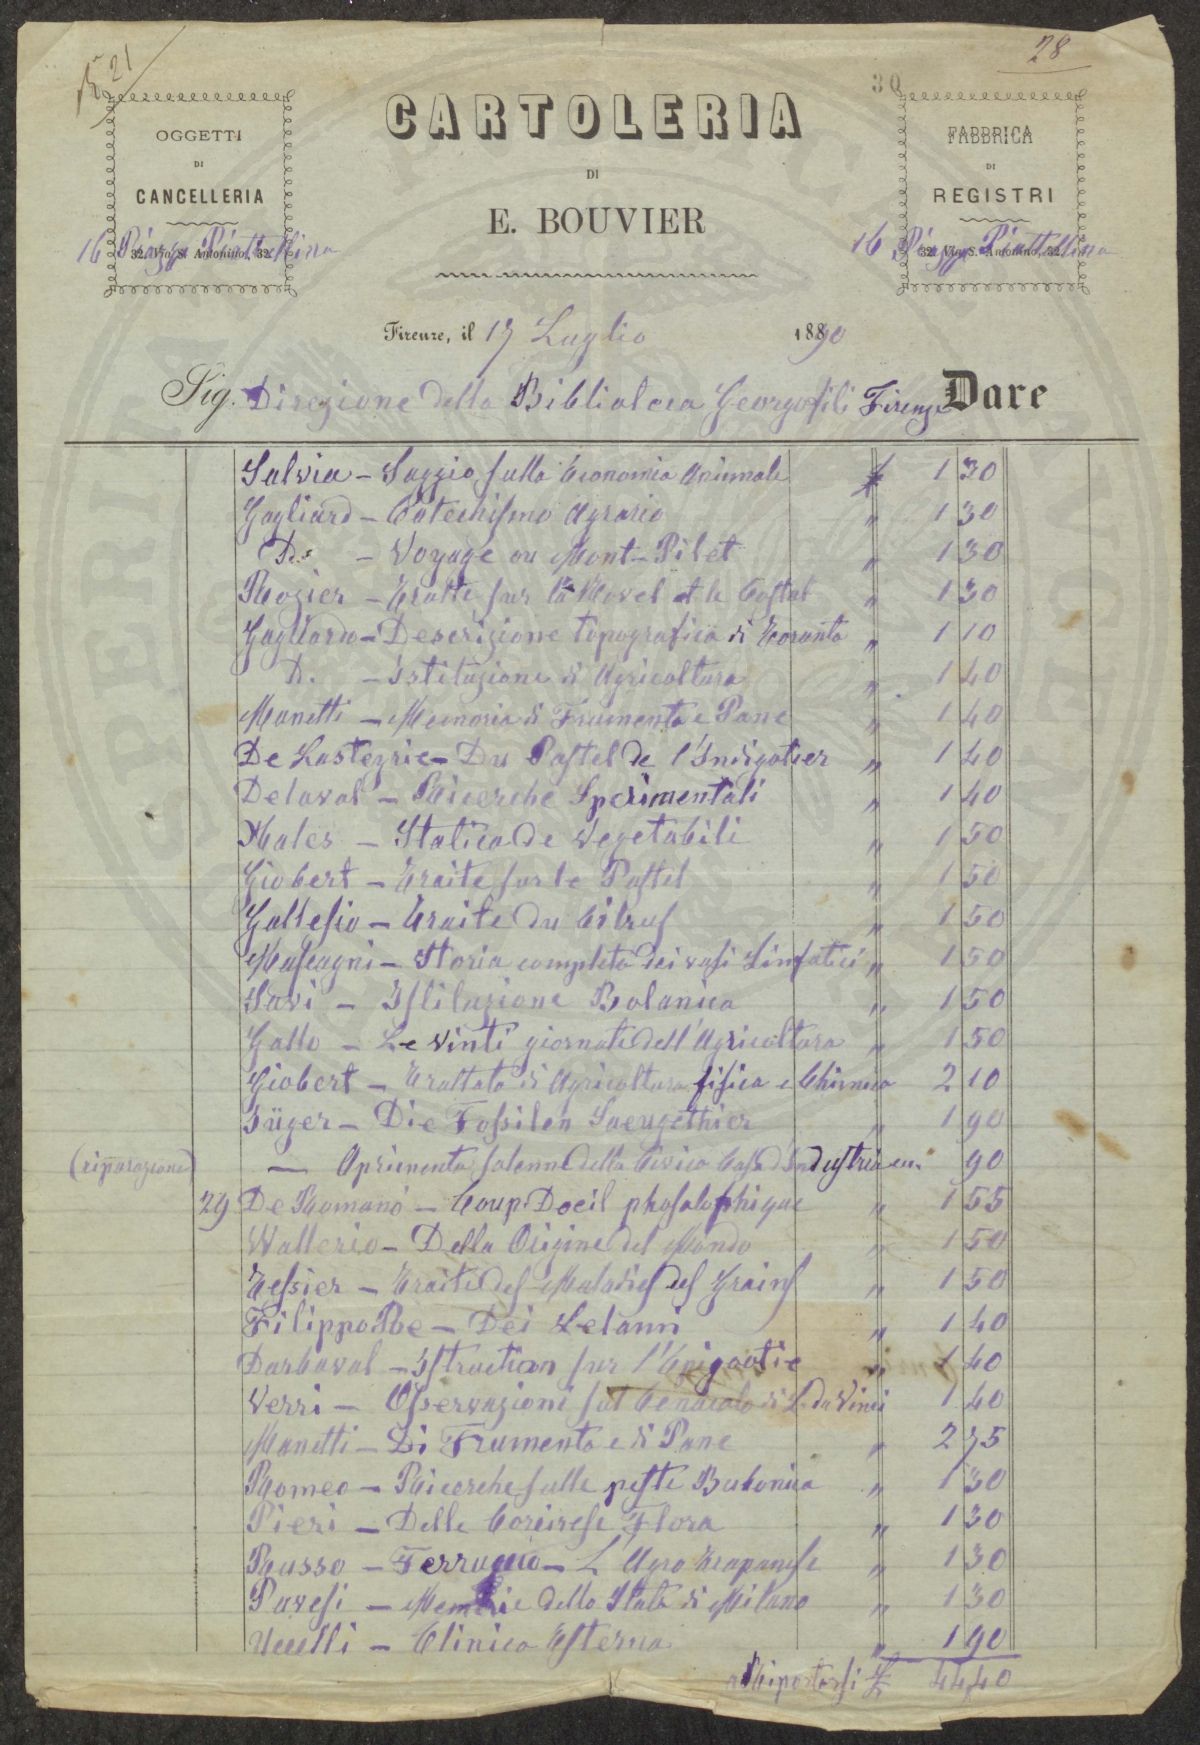 N° 21
28
30
CARTOLERIA
DI
E. BOUVIER
OGGETTI
DI
CANCELLERIA
32. Via S. Antonino, 32.
16 Piazza Piattellina
FABBRICA
DI
REGISTRI
32. Via S. Antonino, 32.
16 Piazza Piattellina
Firenze, il 17 Luglio 1890
Sig. Direzione della Biblioteca Georgofili Firenze Dare
Salvia - Saggio sulla Economia Animale £ 1 30
Gagliard - Catechismo Agrario " 1 30
D. - Voyage ou Mont-Pilet " 1 30
Rozier - Traite sur la Navet et le Colsat " 1 30
Gagliardo - Descrizione topografica di Taranto " 1 10
D. - Istituzione di Agricoltura " 1 40
Manetti - Memoria di Frumento e Pane " 1 40
De Lasteyrie - Du Pastel de l'Indigotier " 1 40
Delaval - Ricerche Sperimentali " 1 40
Hales - Statica de Vegetabili " 1 50
Giobert - Traite sur le Pastel " 1 50
Gallesio - Traite du Citrus " 1 50
Mascagni - Storia completa dei vasi Linfatici " 1 50
Savi - Istituzione Botanica " 1 50
Gallo - Le vinti giornate dell'Agricoltura " 1 50
Giobert - Trattato di Agricoltura fisica e Chimica 2 10
Jäger - Die Fossilen Saeugethier " 1 90
(riparazione) - Aprimento solenne della Civica Casa d'Industria ecc. 90
29 De Romano - Coup D'oeil phosolophique " 1 55
Wallerio - Della Origine del Mondo " 1 50
Tessier - Traite des Maladies des Grains " 1 50
Filippo Re - Dei Letami " 1 40
Darbaval - Istruction sur l'Epizootie " 1 40
Verri - Osservazioni sul Cenacolo di L. da Vinci 1 40
Manetti - Di Frumento e di Pane " 2 75
Romeo - Ricerche sulle peste Bubonica " 1 30
Pieri - Delle Corcirese Flora " 1 30
Russo - Ferrugio - L'Agro Trapanese " 1 30
Pavesi - Memorie dello Stato di Milano " 1 30
Uccelli - Clinica Esterna " 1 90
a Riportarsi £ 44,40